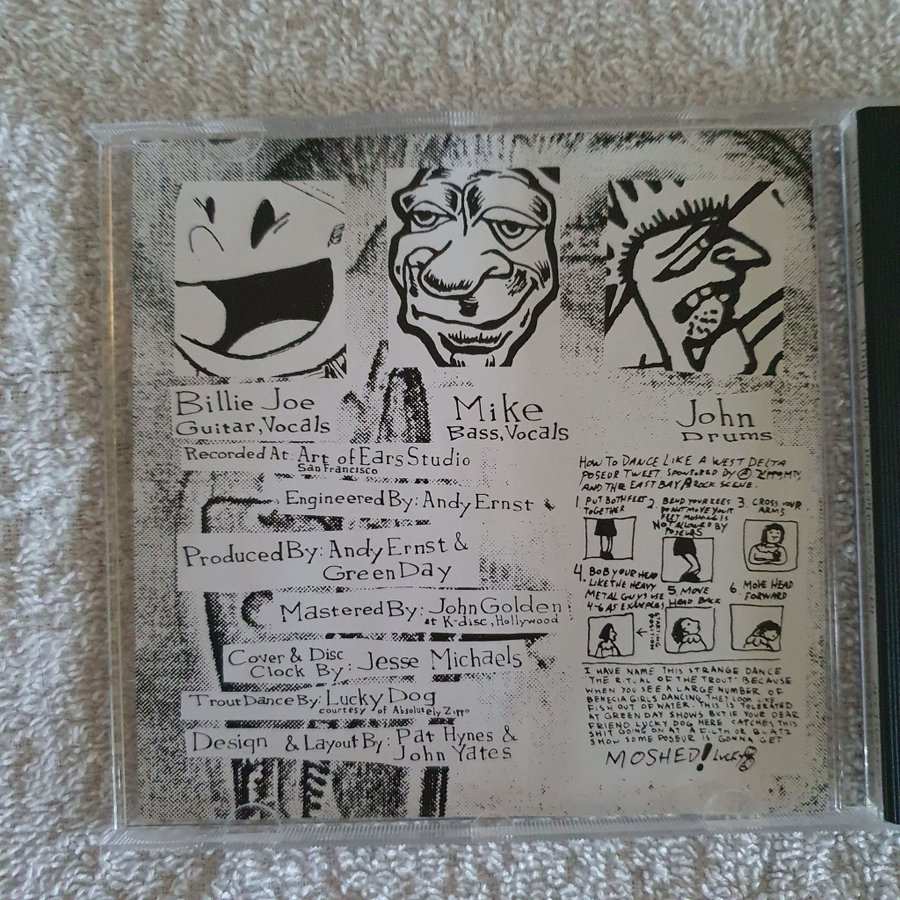 Billie Joe
Guitar, Vocals
Mike
Bass, Vocals
John
Drums
Recorded At: Art of Ears Studio
San Francisco
Engineered By: Andy Ernst
Produced By: Andy Ernst &
Green Day
Mastered By: John Golden
at K-disc, Hollywood
Cover & Disc
Clock By: Jesse Michaels
Trout Dance By: Lucky Dog
courtesy of Absolutely Zippo
Design & Layout By: Pat Hynes &
John Yates
HOW TO DANCE LIKE A WEST DELTA
POSEUR TWEET SPONSORED BY
AND THE EAST BAY ROCK SCENE.
1 PUT BOTH FEET
TOGETHER
2. BEND YOUR KNEES
DO NOT MOVE YOUR
FEET MOSHING IS
NOT ALLOWED BY
POSEURS
3. CROSS YOUR
ARMS
4. BOB YOUR HEAD
LIKE THE HEAVY
METAL GUYS USE
4-6 AS EXAMPLES
STARTING
POSITION
5. MOVE
HEAD BACK
6. MOVE HEAD
FORWARD
I HAVE NAME THIS STRANGE DANCE
THE R.T.UAL OF THE TROUT. BECAUSE
WHEN YOU SEE A LARGE NUMBER OF
BENECIA GIRLS DANCING THEY LOOK LIKE
FISH OUT OF WATER. THIS IS TOLERATED
AT GREEN DAY SHOWS BUT IF YOUR DEAR
FRIEND LUCKY DOG HERE CATCHES THIS
SHIT GOING ON AT A FILTH OR BLATZ
SHOW SOME POSEUR IS GONNA GET
MOSHED! LUCKY